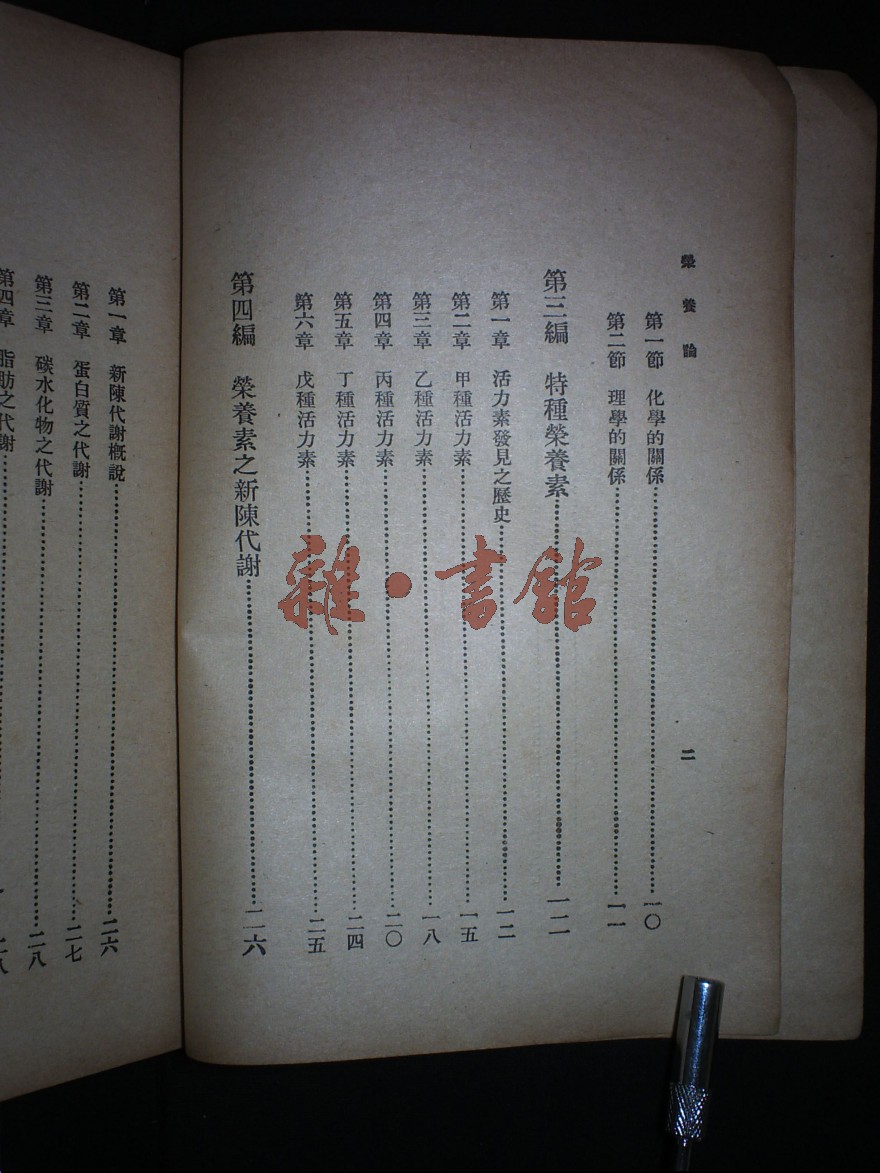 榮養論
二
第一節 化學的關係 一〇
第二節 理學的關係 一一
第三編 特種榮養素 一二
第一章 活力素發見之歷史 一二
第二章 甲種活力素 一五
第三章 乙種活力素 一八
第四章 丙種活力素 二〇
第五章 丁種活力素 二四
第六章 戊種活力素 二五
第四編 榮養素之新陳代謝 二六
第一章 新陳代謝概說 二六
第二章 蛋白質之代謝 二七
第三章 碳水化物之代謝 二八
第四章 脂肪之代謝
雜·書館